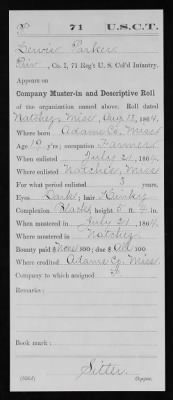 P 71 U.S.C.T.
Parker
Priv, Co. I, 71 Reg't U. S. Col'd Infantry.
Appears on
Company Muster-in and Descriptive Roll
of the organization named above. Roll dated
Natchez, Miss, Aug 12, 1864.
Where born Adams Co, Miss
Age 19 y'rs; occupation Farmer
When enlisted July 21, 1864.
Where enlisted Natchez Miss
For what period enlisted 3 years.
Eyes Dark; hair Kinky
Complexion Black; height 5 ft. in.
When mustered in July 21, 1864.
Where mustered in Natchez
Bounty paid $ None 100; due $ All 100
Where credited Adams Co, Miss
Company to which assigned
Remarks:
Book mark:
Copyist.